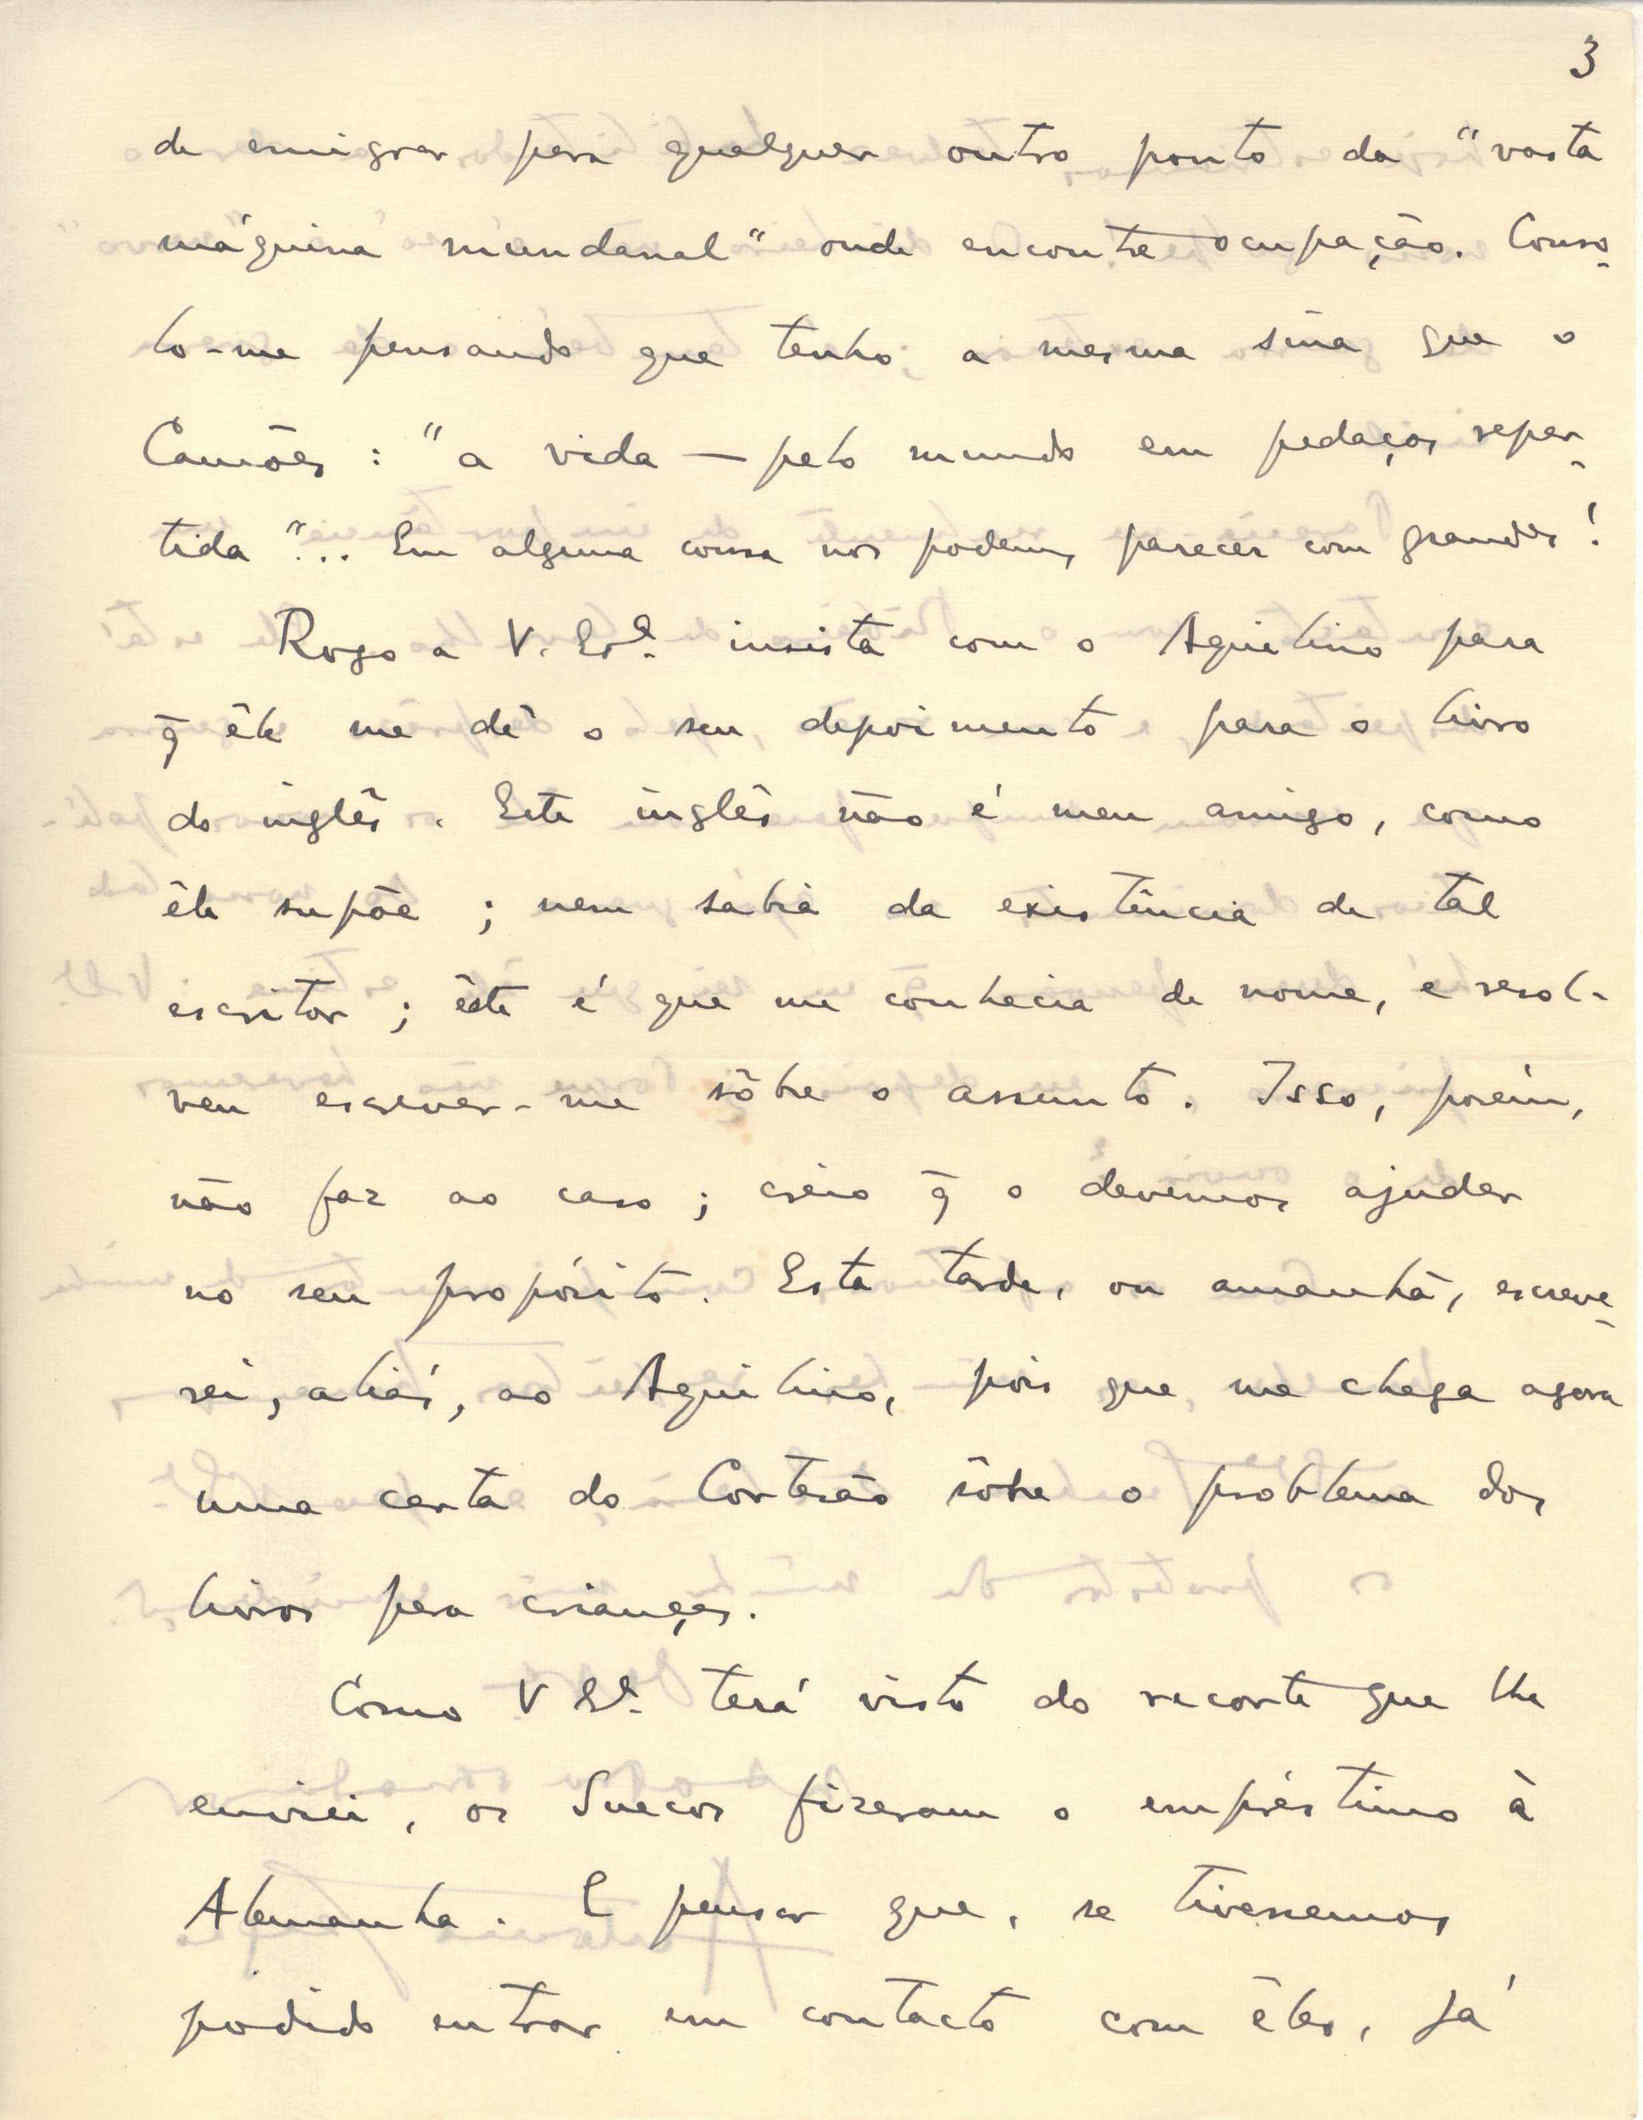 3
de emigrar para qualquer outro ponto da "vasta
máquina mundanal" onde encontre ocupação. Conso-
lo-me pensando que tenho a mesma sina que o
Camões: "a vida — pelo mundo em pedaços repar-
tida"... Em alguma cousa nos podemos parecer com grandes!
Rogo a V. Ex.ª insista com o Aquilino para
q̄ êle me dê o seu depoimento para o livro
do inglês. Este inglês não é meu amigo, como
êle supõe; nem sabia da existência de tal
escritor; êste é que me conhecia de nome, e resol-
veu escrever-me sôbre o assunto. Isso, porém,
não faz ao caso; creio q̄ o devemos ajudar
no seu propósito. Esta tarde, ou amanhã, escreve-
rei, aliás, ao Aquilino, pois que me chega agora
uma carta do Cortesão sôbre o problema dos
livros para crianças.
Como V. Ex.ª terá visto do recorte que lhe
enviei, os Suecos fizeram o empréstimo à
Alemanha. E pensar que, se tivessemos
podido entrar em contacto com êles, já